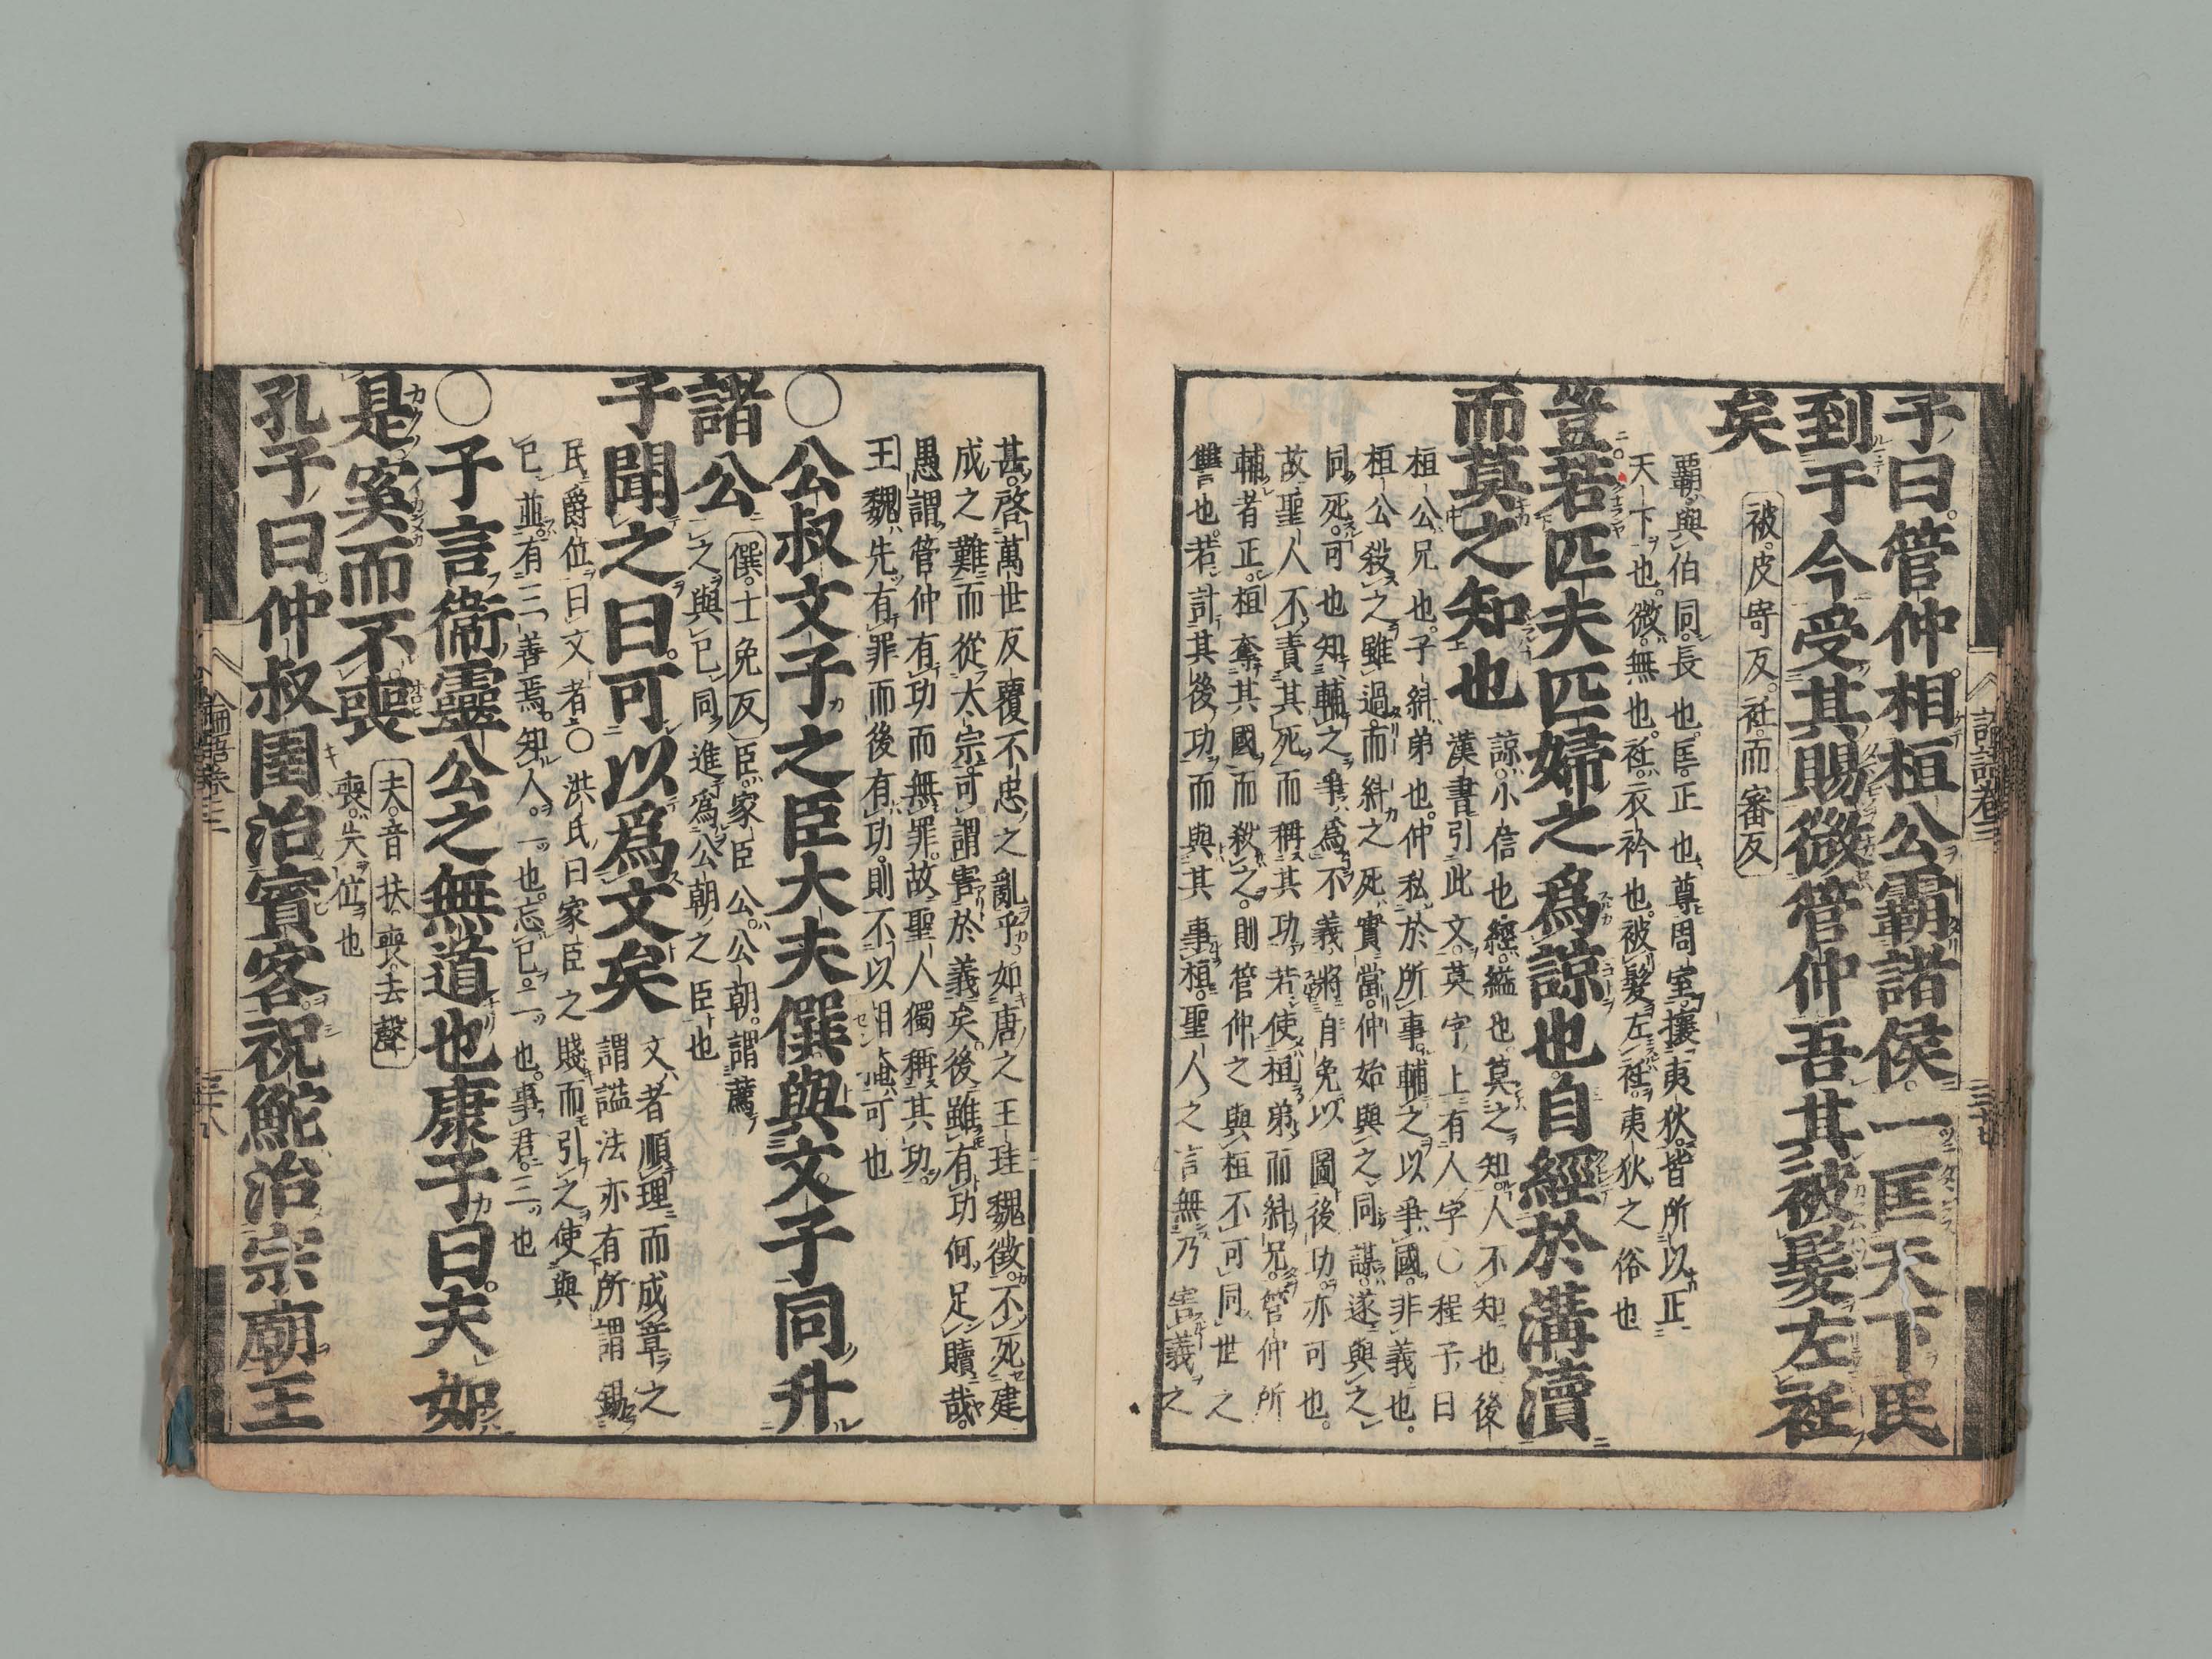 子曰管仲相桓公霸諸侯一匡天下民
到于今受其賜微管仲吾其被髮左衽
矣
被皮寄反衽而審反
霸與伯同長也匡正也尊周室攘夷狄皆所以正
天下也微無也衽衣衿也被髮左衽夷狄之俗也
豈若匹夫匹婦之爲諒也自經於溝瀆
而莫之知也
諒小信也經縊也莫之知人不知也後
漢書引此文莫字上有人字〇程子曰
桓公兄也子糾弟也仲私於所事輔之以爭國非義也
桓公殺之雖過而糾之死實當仲始與之同謀遂與之
同死可也知輔之爭爲不義將自免以圖後功亦可也
故聖人不責其死而稱其功若使桓弟而糾兄管仲所
輔者正桓奪其國而殺之則管仲之與桓不可同世之
讐也若計其後功而與其事桓聖人之言無乃害義之
甚啓萬世反覆不忠之亂乎如唐之王珪魏徵不死建
成之難而從太宗可謂害於義矣後雖有功何足贖哉
愚謂管仲有功而無罪故聖人獨稱其功
王魏先有罪而後有功則不以相掩可也
〇公叔文子之臣大夫僎與文子同升
諸公
僎士免反
臣家臣公公朝謂薦
之與已同進爲公朝之臣也
子聞之曰可以爲文矣
文者順理而成章之
謂謚法亦有所謂錫
民爵位曰文者〇洪氏曰家臣之賤而引之使與
已並有三善焉知人一也忘已二也事君三也
〇子言衞靈公之無道也康子曰夫如
是奚而不喪
夫音扶喪去聲
喪失位也
孔子曰仲叔圉治賓客祝鮀治宗廟王
論語卷三